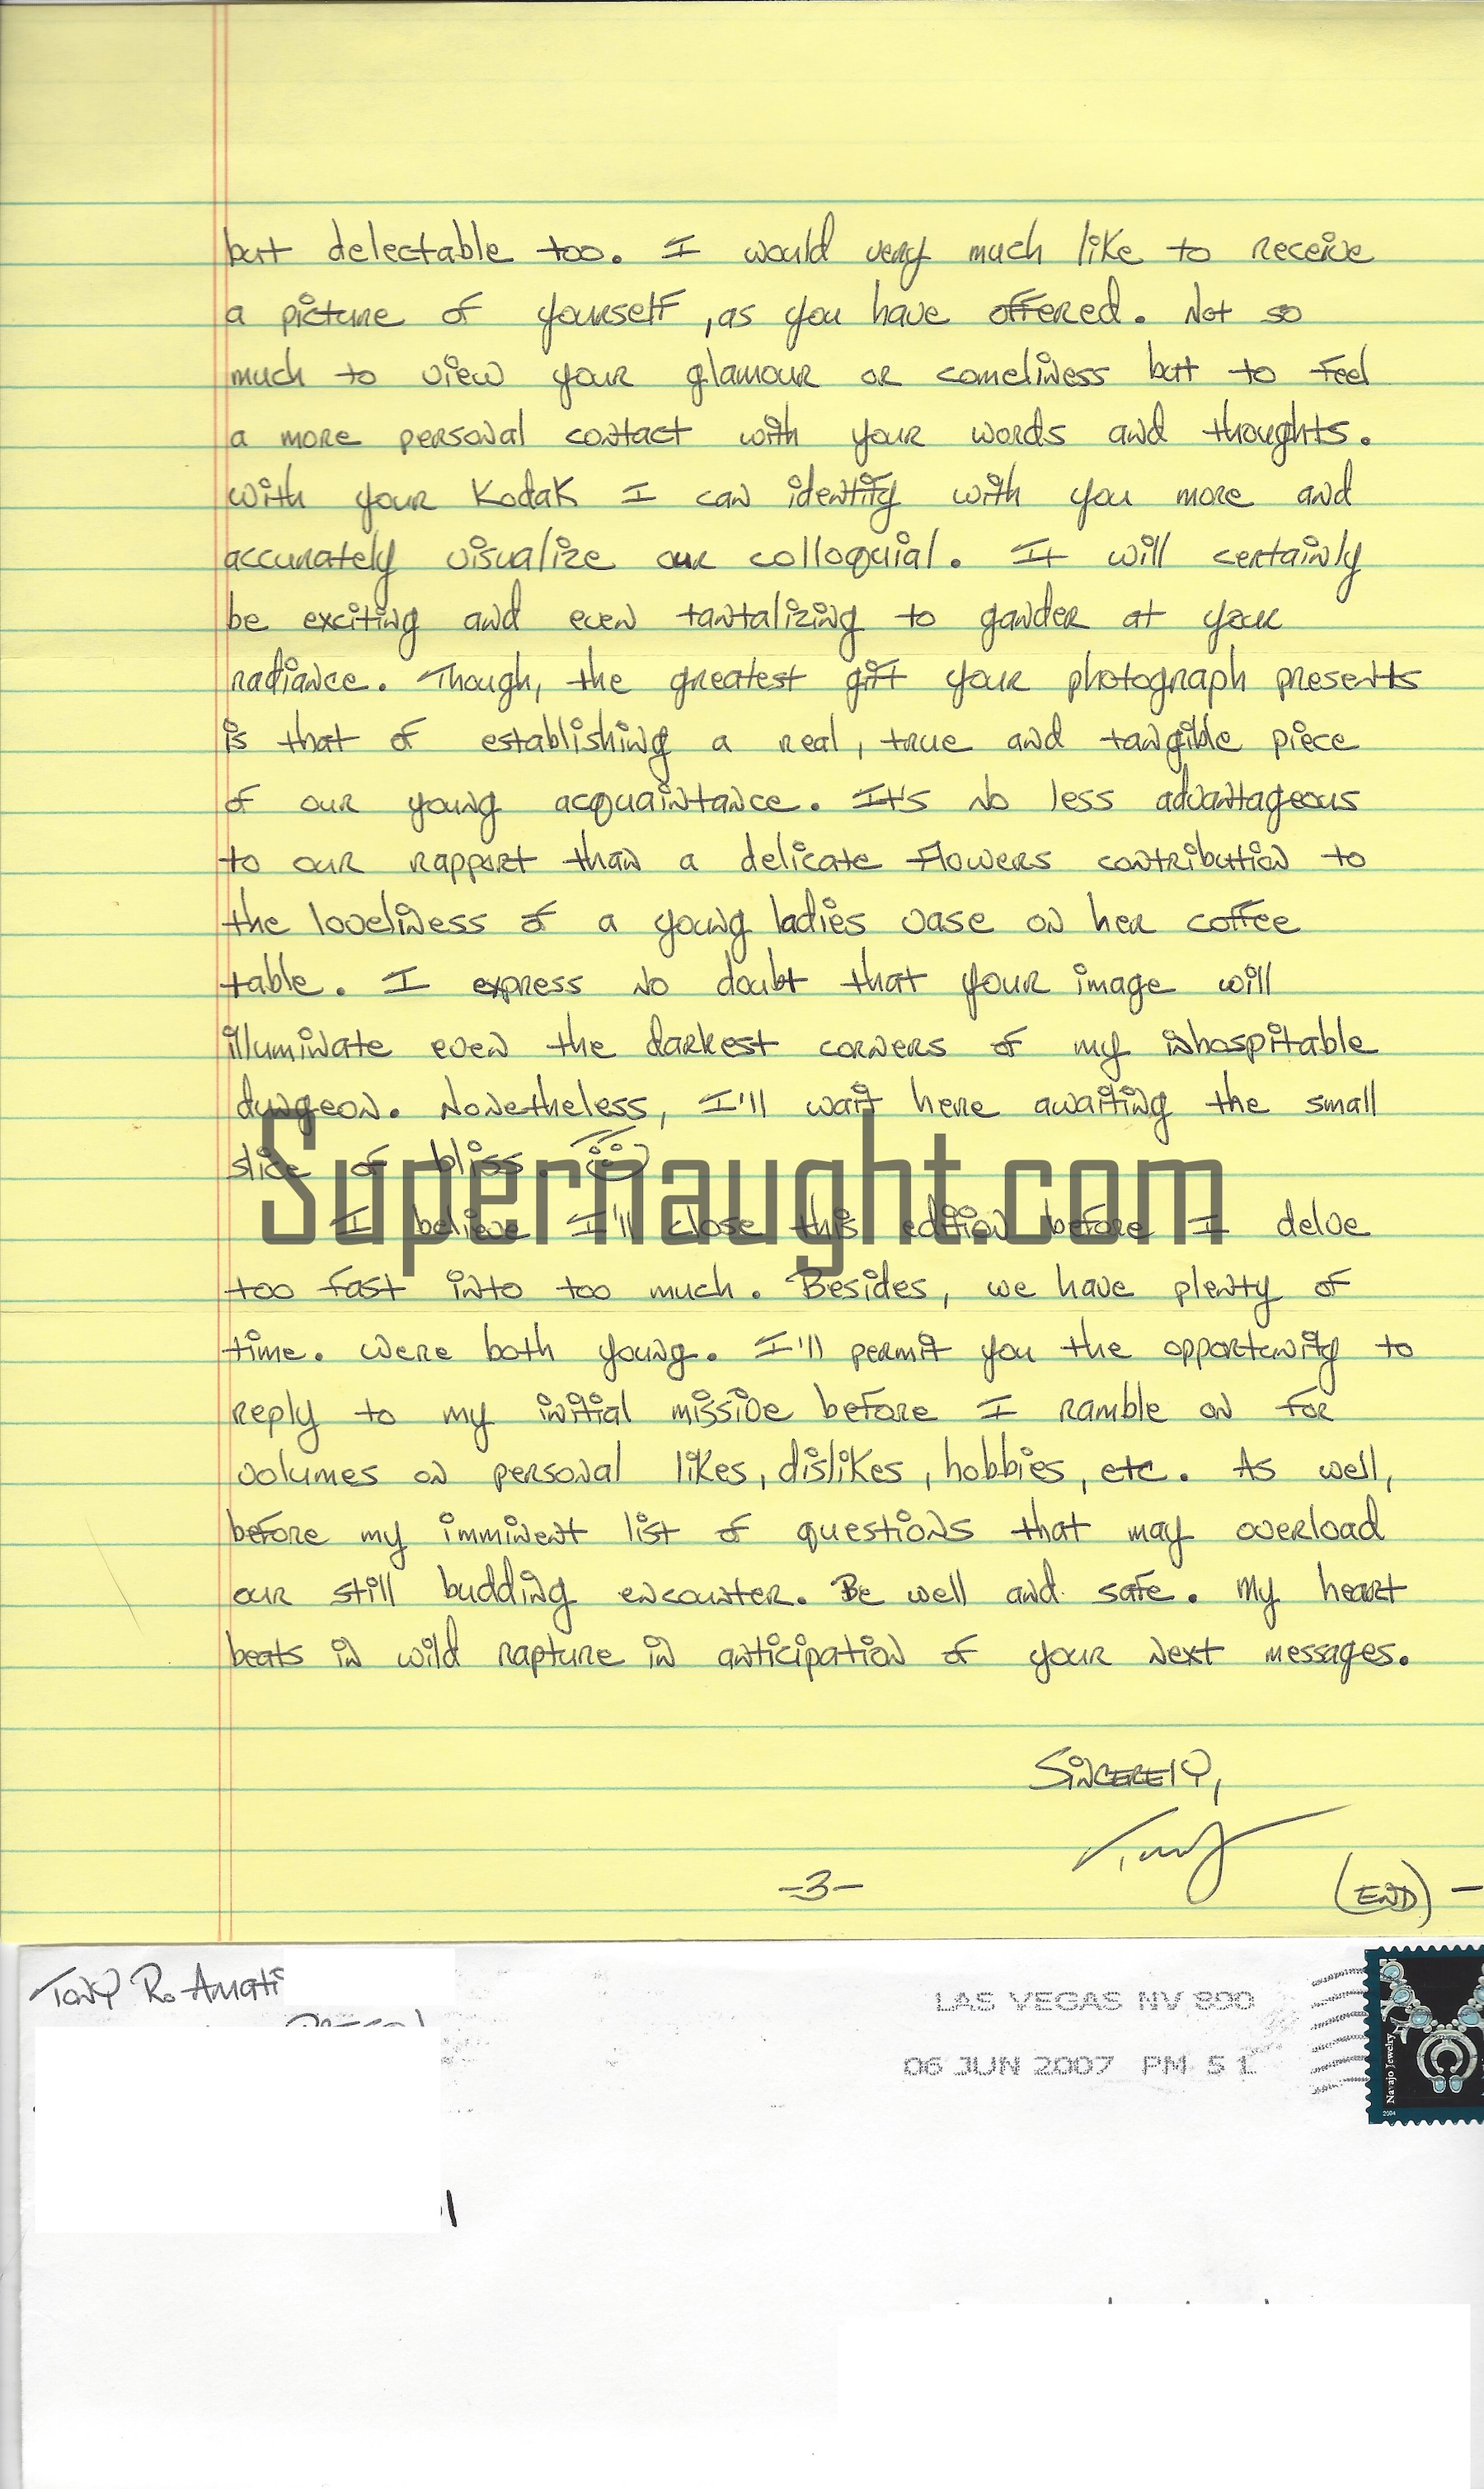 but delectable too. I would very much like to receive
a picture of yourself, as you have offered. Not so
much to view your glamour or comeliness but to feel
a more personal contact with your words and thoughts.
With your Kodak I can identify with you more and
accurately visualize our colloquial. It will certainly
be exciting and even tantalizing to gander at your
radiance. Though, the greatest gift your photograph presents
is that of establishing a real, true and tangible piece
of our young acquaintance. It's no less advantageous
to our rapport than a delicate flowers contribution to
the loveliness of a young ladies vase on her coffee
table. I express no doubt that your image will
illuminate even the darkest corners of my inhospitable
dungeon. Nonetheless, I'll wait here awaiting the small
slice of bliss
Supernaught.com
I believe I'll close this edition before I delve
too fast into too much. Besides, we have plenty of
time. Were both young. I'll permit you the opportunity to
reply to my initial missive before I ramble on for
volumes on personal likes, dislikes, hobbies, etc. As well,
before my imminent list of questions that may overload
our still budding encounter. Be well and safe. My heart
beats in wild rapture in anticipation of your next messages.
Sincerely,
Tony
-3-
(END) -
Tony R. Amati
LAS VEGAS NV 890
06 JUN 2007 PM 5 L
Navajo Jewelry
2004